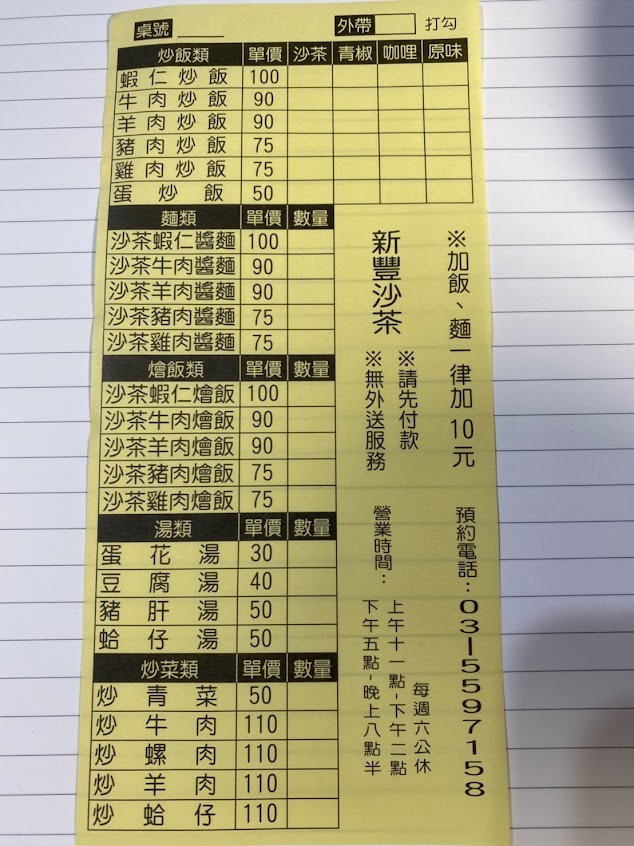 桌號 外帶 打勾
炒飯類 單價 沙茶 青椒 咖哩 原味
蝦仁炒飯 100
牛肉炒飯 90
羊肉炒飯 90
豬肉炒飯 75
雞肉炒飯 75
蛋炒飯 50
麵類 單價 數量
沙茶蝦仁醬麵 100
沙茶牛肉醬麵 90
沙茶羊肉醬麵 90
沙茶豬肉醬麵 75
沙茶雞肉醬麵 75
燴飯類 單價 數量
沙茶蝦仁燴飯 100
沙茶牛肉燴飯 90
沙茶羊肉燴飯 90
沙茶豬肉燴飯 75
沙茶雞肉燴飯 75
湯類 單價 數量
蛋花湯 30
豆腐湯 40
豬肝湯 50
蛤仔湯 50
炒菜類 單價 數量
炒青菜 50
炒牛肉 110
炒螺肉 110
炒羊肉 110
炒蛤仔 110
※加飯、麵一律加 10 元
新豐沙茶
※請先付款
※無外送服務
預約電話：03-5597158
營業時間：
上午十一點-下午二點
下午五點-晚上八點半
每週六公休